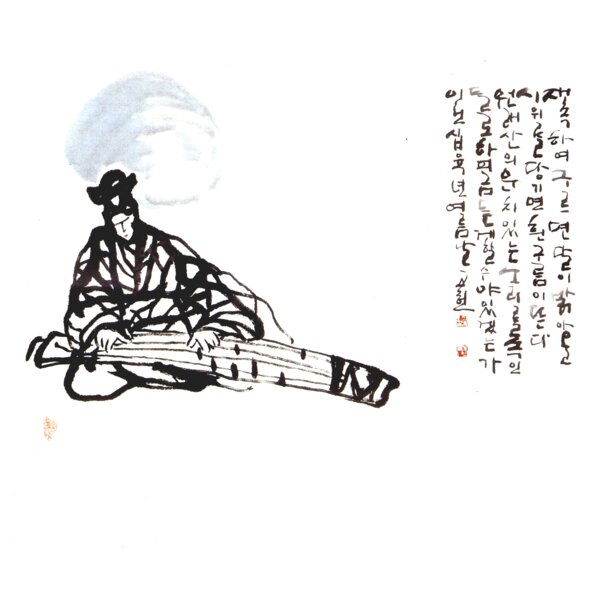 재촉하여구르면달이밝아오고
시위를당기면흰구름이
원래산의운치있는소리를속인
들로하여금듣게할수야있겠는가
십육년여름날